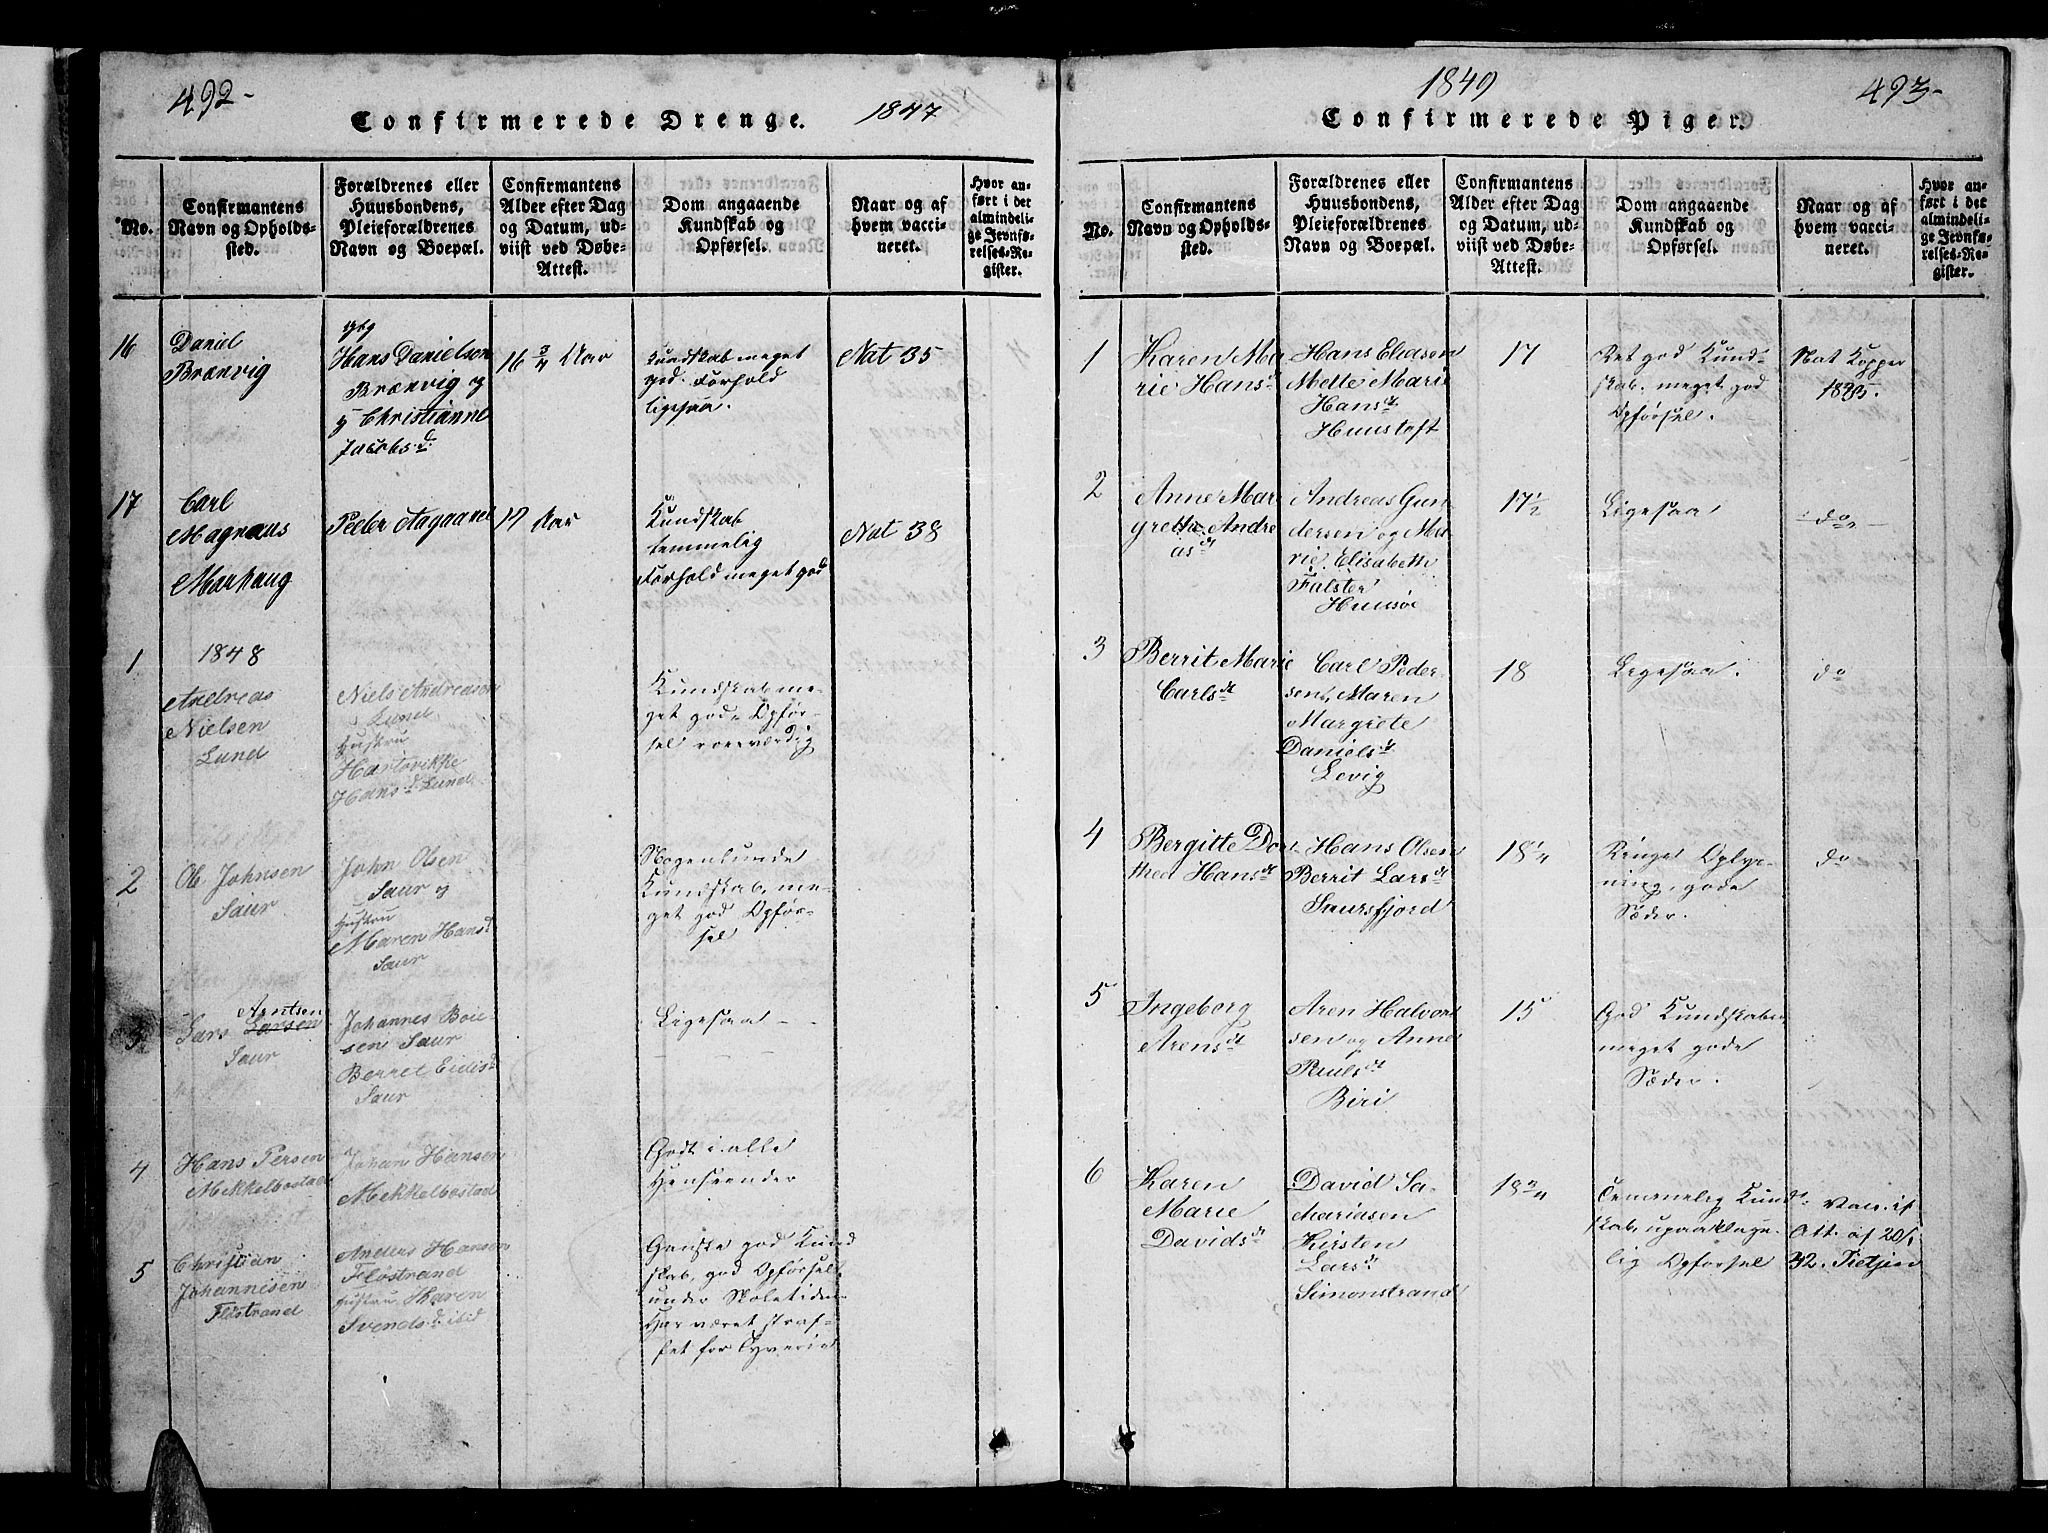 492-
Confirmerede Drenge.
1847
No.
Confirmantens Navn og Opholds-sted.
Forældrenes eller Huusbondens, Pleieforældrenes Navn og Boepæl.
Confirmantens Alder efter Dag og Datum, ud-viist ved Døbe-Attest.
Dom angaaende Kundskab og Opførsel.
Naar og af hvem vacci-neret.
Hvor an-ført i det almindeli-ge Jevnfø-relses-Re-gister.
16
Daniel
Brænvig
Hans Danielsen
Brænvig og
Christianne
Jacobsd.
16 3/4 Aar
Kundskab meget
god. Forhold
ligesaa.
Nat 35
17
Carl
Magnus
Markaug
Peder Aagaard
17 Aar
Kundskab
temmelig
Forhold meget god
Nat 38
1848
1
Andreas
Nielsen
Lund
Niels Andreasen
Lund
Hustru
Hans d Lund
Kundskab me-
get god. Opfør-
sel roesværdig
2
Ole Johnsen
Saur
John Olsen
Saur og
Hustru
Maren Hansd
Saur
Nogenlunde
Kundskab, me-
get god Opfør-
sel
3
Arntsen
Lars Larsen
Saur
Johannes Boie-
sen Saur
Berret Eidisd
Saur
Ligesaa - -
4
Hans Persen
Mekkelbostad
Johan Hansen
Mekkelbostad
Godt i alle
Henseender
5
Christian
Johannesen
Flöstrand
Anders Hansen
Flöstrand
Hustru Maren
Svendsd: ibid
Ganske god Kund
skab, god Opförsel
under Skoletiden
Har været straf-
fet for Tyverie
1849
493-
Confirmerede Piger.
No.
Confirmantens Navn og Opholds-sted.
Forældrenes eller Huusbondens, Pleieforældrenes Navn og Boepæl.
Confirmantens Alder efter Dag og Datum, ud-viist ved Døbe-Attest.
Dom angaaende Kundskab og Opførsel.
Naar og af hvem vacci-neret.
Hvor an-ført i det almindeli-ge Jevnfø-relses-Re-gister.
1
Karen Ma
rie Hansdt
Hans Eliasen
Mette Marie
Hansdt
Huustoft
17
Ret god Kund-
skab. meget god
Opførsel.
Nat Kopper
1835.
2
Anne Mar
grethe Andre
asdt
Andreas Gun
dersen og Ma
rie Elisabeth
Falster
Huusöe
17 1/2
Ligesaa
do
3
Berrit Marie
Carlsdt
Carl Peder-
sen, Maren
Margrete
Danielsdt
Levig
18
Ligesaa.
do
4
Bergitte Dor
thea Hansdt
Hans Olsen
Berrit Larsdt
Saursfjord
18 1/4
Ringe Oplys-
ning, gode
Sæder.
do
5
Ingeborg
Arensdt
Aren Halvor
sen og Anne
Paulsdt
Biri
15
God Kundskaber,
meget gode
Sæder.
6
Karen
Marie
Davidsdt
David Za-
Mariasen
Kirsten
Larsdt
Simonstrand
18 3/4
Temmelig Kund
skab, upaaklage-
lig Opførsel
Vacc. if.
Att. af 20/
32. Tietjen